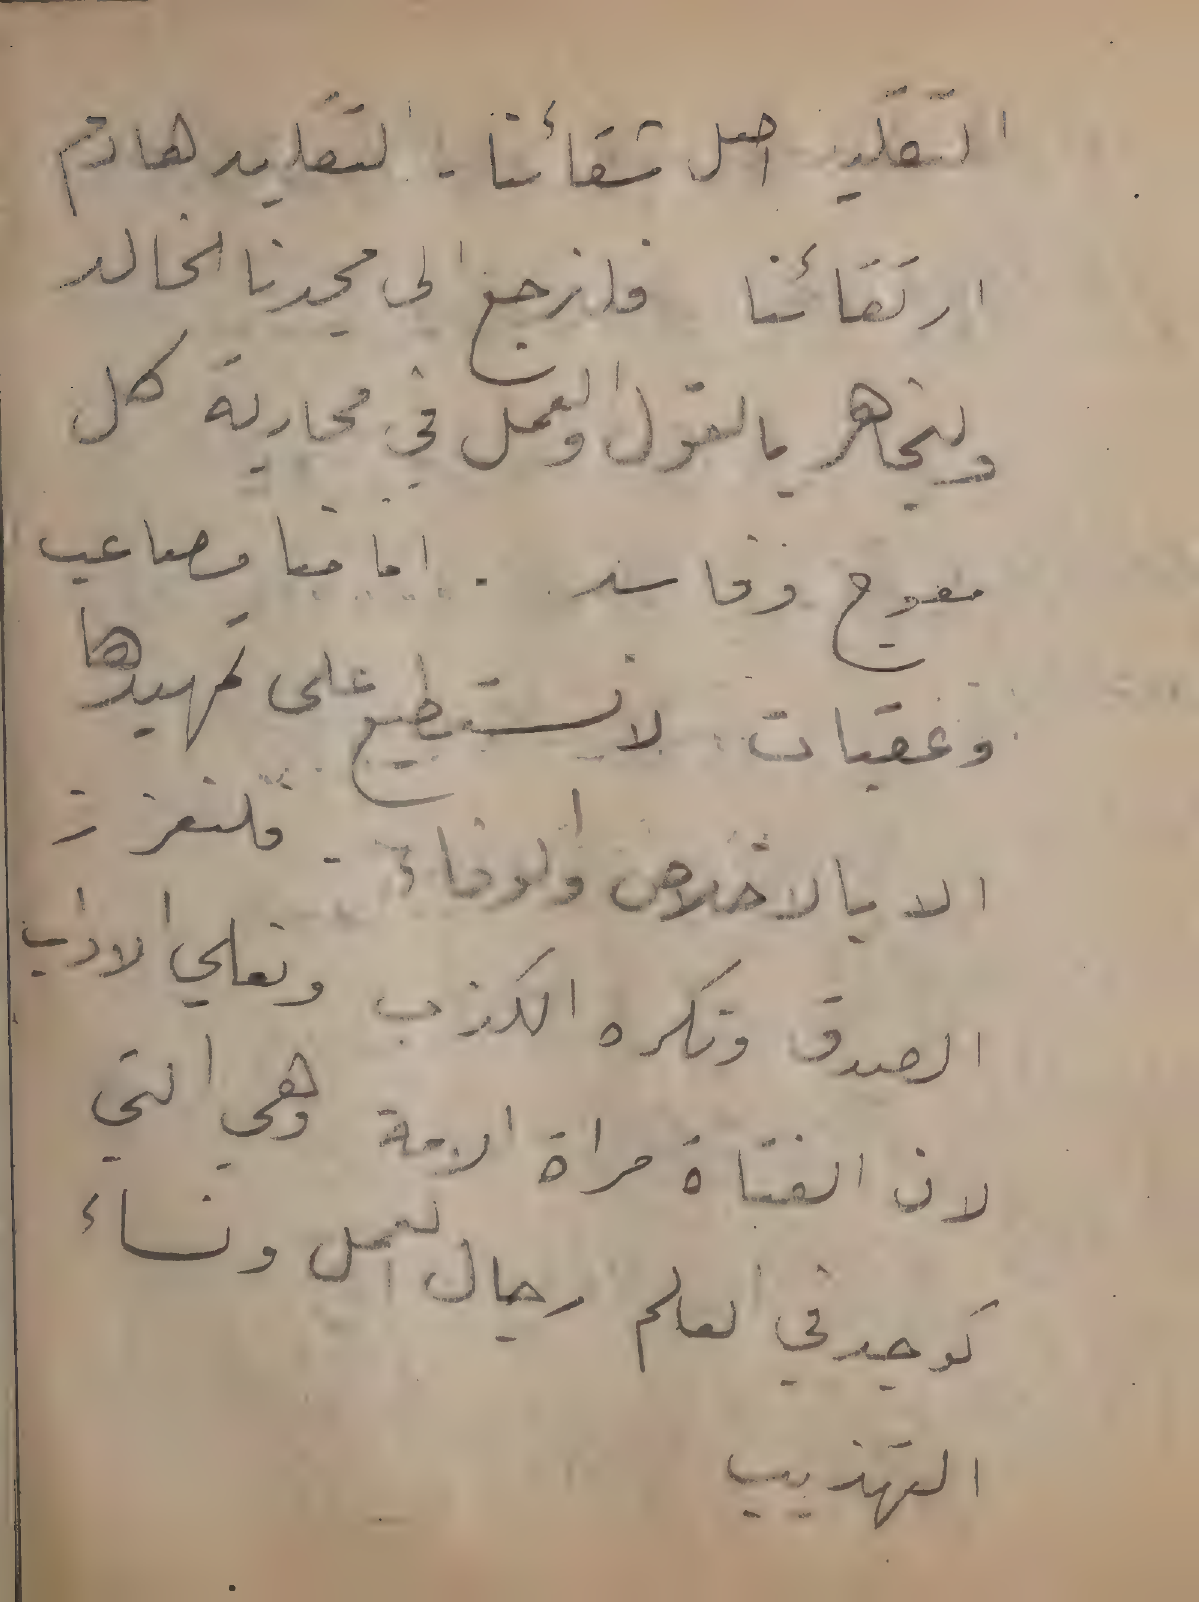 التقليد اصل شقائنا - التقليد هادم
ارتقائنا فلنرجع الى مجدنا الخالد
ولنجاهر بالقول والعمل في محاربة كل
معوج وفاسد . امامنا مصاعب
وعقبات لا نستطيع على تمهيدها
الا بالاخلاص والوفاء - فلنعزز
الصدق ونكره الكذب ونعلي الاداب
لان الفتاة مراة الامة وهي التي
توجد في العالم رجال العمل ونساء
التهذيب